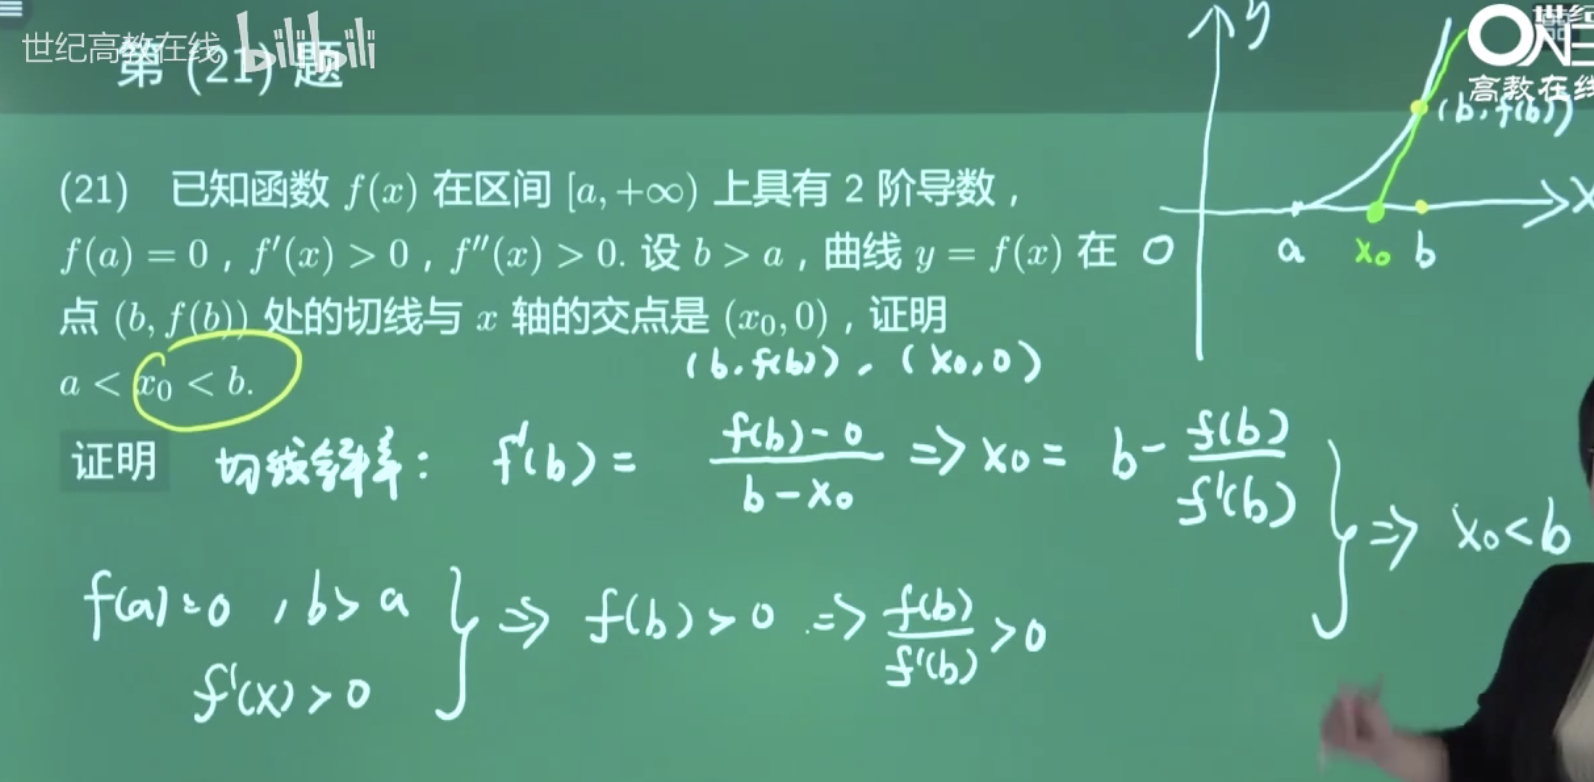 世纪高教在线 bilibili
第 (21) 题
ON
高教在线
(21) 已知函数 f(x) 在区间 [a, +∞) 上具有 2 阶导数，
f(a) = 0，f′(x) > 0，f″(x) > 0. 设 b > a，曲线 y = f(x) 在
点 (b, f(b)) 处的切线与 x 轴的交点是 (x₀, 0)，证明
a < x₀ < b.
y
(b, f(b))
x
O a x₀ b
(b, f(b)), (x₀, 0)
证明 切线斜率: f′(b) = (f(b) - 0)/(b - x₀) ⇒ x₀ = b - f(b)/f′(b)
⇒ x₀ < b
f(a) = 0, b > a
f′(x) > 0
⇒ f(b) > 0 ⇒ f(b)/f′(b) > 0